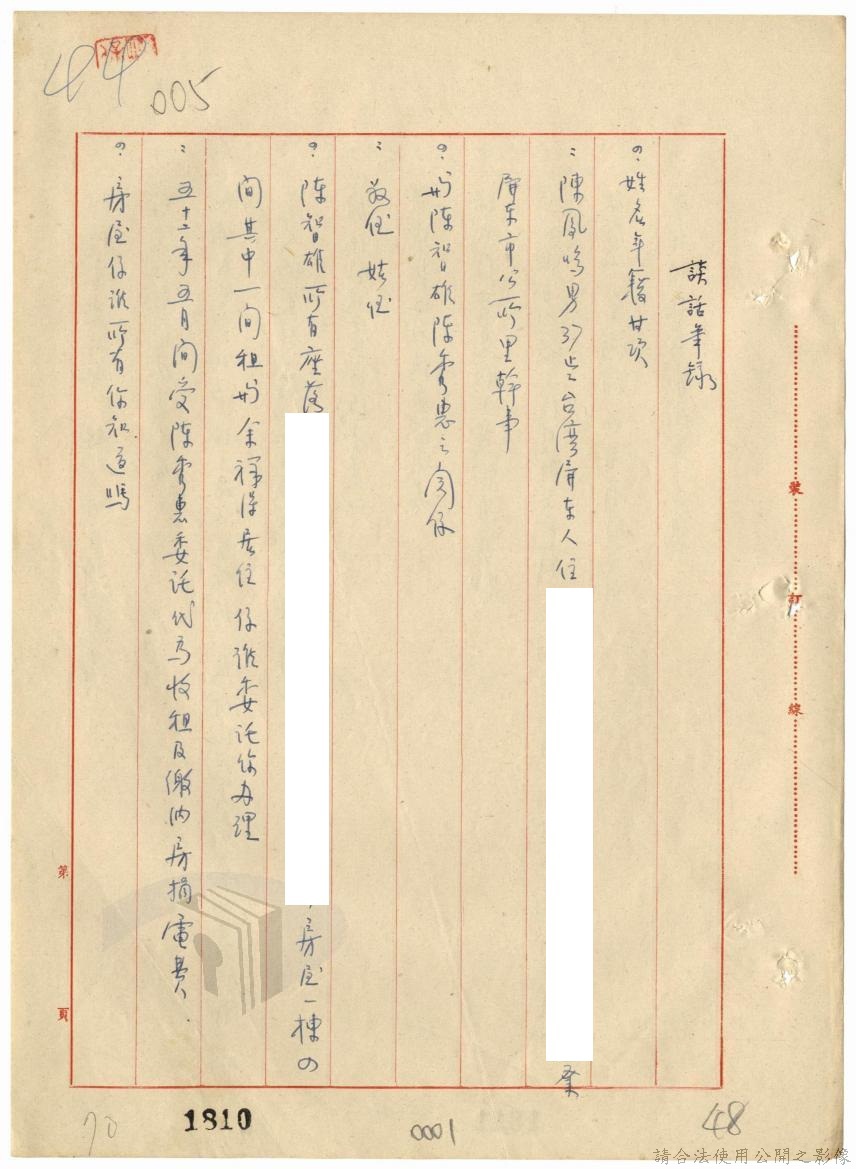 44
005
談話筆錄
問:姓名年籍等項
答:陳鳳鳴男37歲台湾屏东人住 業
屏东市公所里幹事
問:與陳智雄陳秀惠之関係
答:叔侄 姑侄
問:陳智雄所有座落 房屋一棟の
间其中一间租與余祿得居住係誰委託你办理
答:五十二年五月间受陳秀惠委託代為收租及繳纳房捐電費.
問:房屋係誰所有你知道嗎
裝
訂
線
第
頁
70
1810
0001
48
請合法使用公開之影像